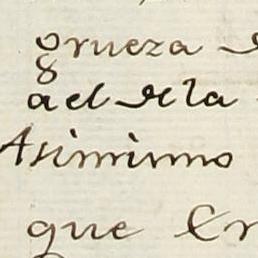 grueza
ael de la
Asimismo
que En